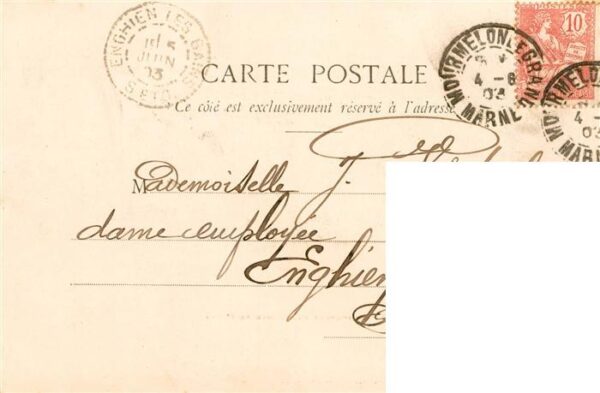 ENGHIEN LES BAINS
5
JUIN
03
POSTES
10
MOURMELON LE GRAND
4 -6
03
MARNE
MOURMELON
4 -
03
MARNE
CARTE POSTALE
Ce côté est exclusivement réservé à l'adresse
Mademoiselle J.
dame employée
Enghien